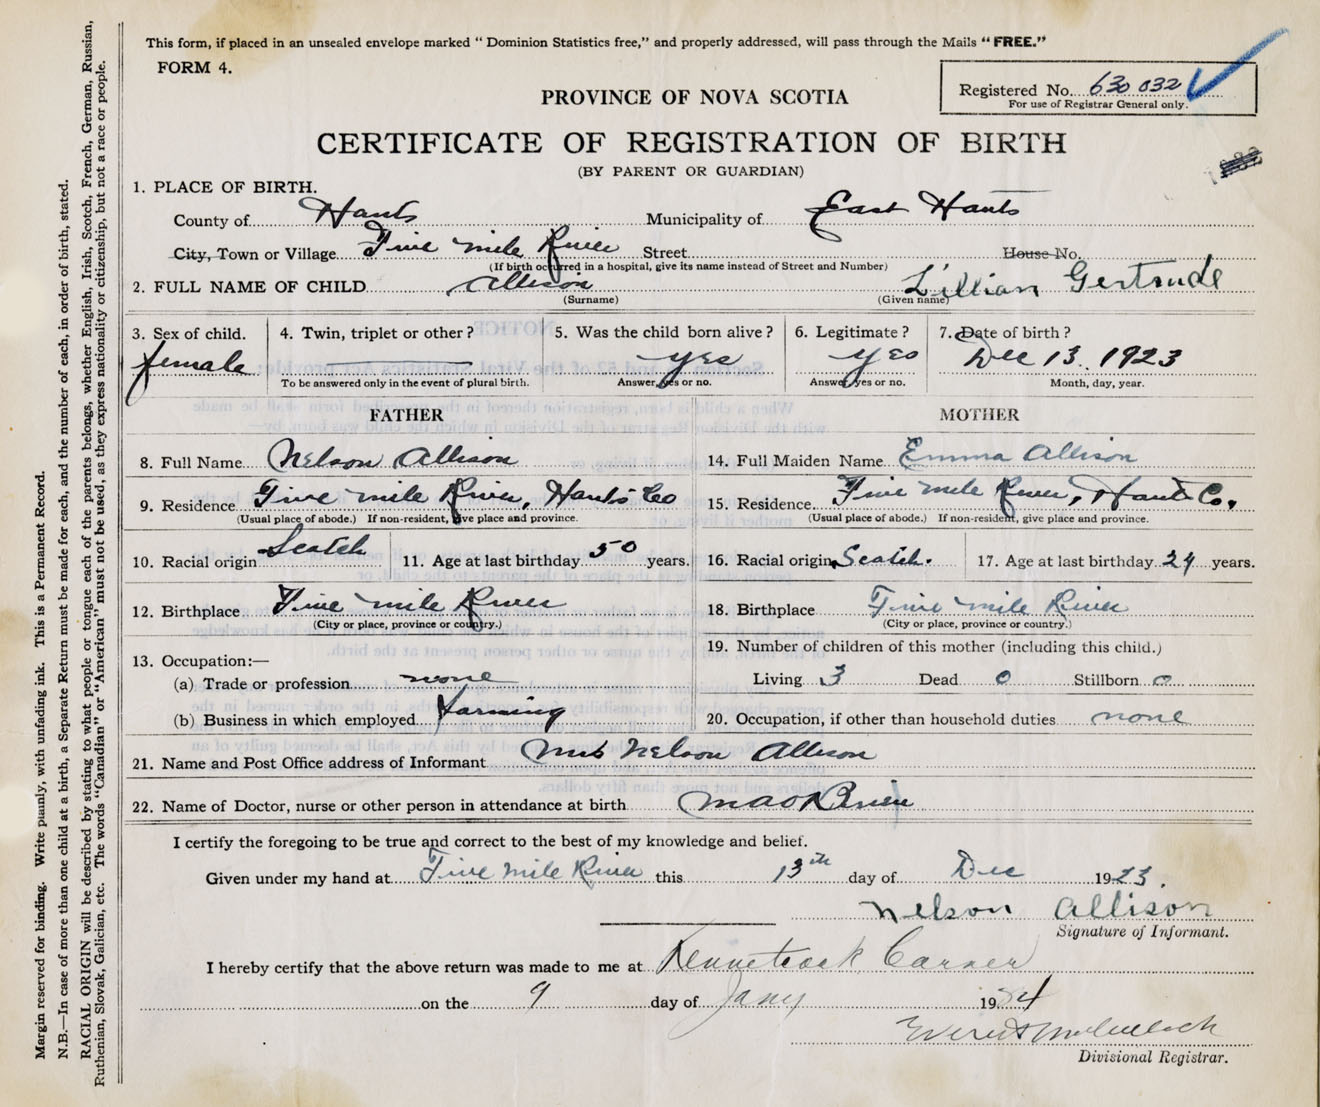 This form, if placed in an unsealed envelope marked “ Dominion Statistics free,” and properly addressed, will pass through the Mails “ FREE.”
FORM 4.
Registered No. 630 032
For use of Registrar General only.
PROVINCE OF NOVA SCOTIA
CERTIFICATE OF REGISTRATION OF BIRTH
(BY PARENT OR GUARDIAN)
1. PLACE OF BIRTH.
County of Hants Municipality of East Hants
City, Town or Village Five mile River Street House No.
(If birth occurred in a hospital, give its name instead of Street and Number)
2. FULL NAME OF CHILD Allison Lillian Gertrude
(Surname) (Given name)
3. Sex of child. 4. Twin, triplet or other ? 5. Was the child born alive ? 6. Legitimate ? 7. Date of birth ?
female yes yes Dec 13. 1923
To be answered only in the event of plural birth. Answer, yes or no. Answer, yes or no. Month, day, year.
FATHER MOTHER
8. Full Name Nelson Allison 14. Full Maiden Name Emma Allison
9. Residence Five mile River, Hants Co 15. Residence Five mile River, Hants Co.
(Usual place of abode.) If non-resident, give place and province. (Usual place of abode.) If non-resident, give place and province.
10. Racial origin Scotch 11. Age at last birthday 50 years. 16. Racial origin Scotch. 17. Age at last birthday years.
12. Birthplace Five mile River 18. Birthplace Five mile River
(City or place, province or country.) (City or place, province or country.)
13. Occupation:— 19. Number of children of this mother (including this child.)
(a) Trade or profession none Living 3 Dead 0 Stillborn 0
(b) Business in which employed Farming 20. Occupation, if other than household duties none
21. Name and Post Office address of Informant Mrs Nelson Allison
22. Name of Doctor, nurse or other person in attendance at birth
I certify the foregoing to be true and correct to the best of my knowledge and belief.
Given under my hand at Five mile River this 13th day of Dec 1923.
Nelson Allison
Signature of Informant.
I hereby certify that the above return was made to me at Kennetcook Corner
on the 9 day of Jany 19
Divisional Registrar.
Margin reserved for binding. Write plainly, with unfading ink. This is a Permanent Record.
N.B.—In case of more than one child at a birth, a Separate Return must be made for each, and the number of each, in order of birth, stated.
RACIAL ORIGIN will be described by stating to what people or tongue each of the parents belongs, whether English, Irish, Scotch, French, German, Russian,
Ruthenian, Slovak, Galician, etc. The words “Canadian” or “American” must not be used, as they express nationality or citizenship, but not a race or people.